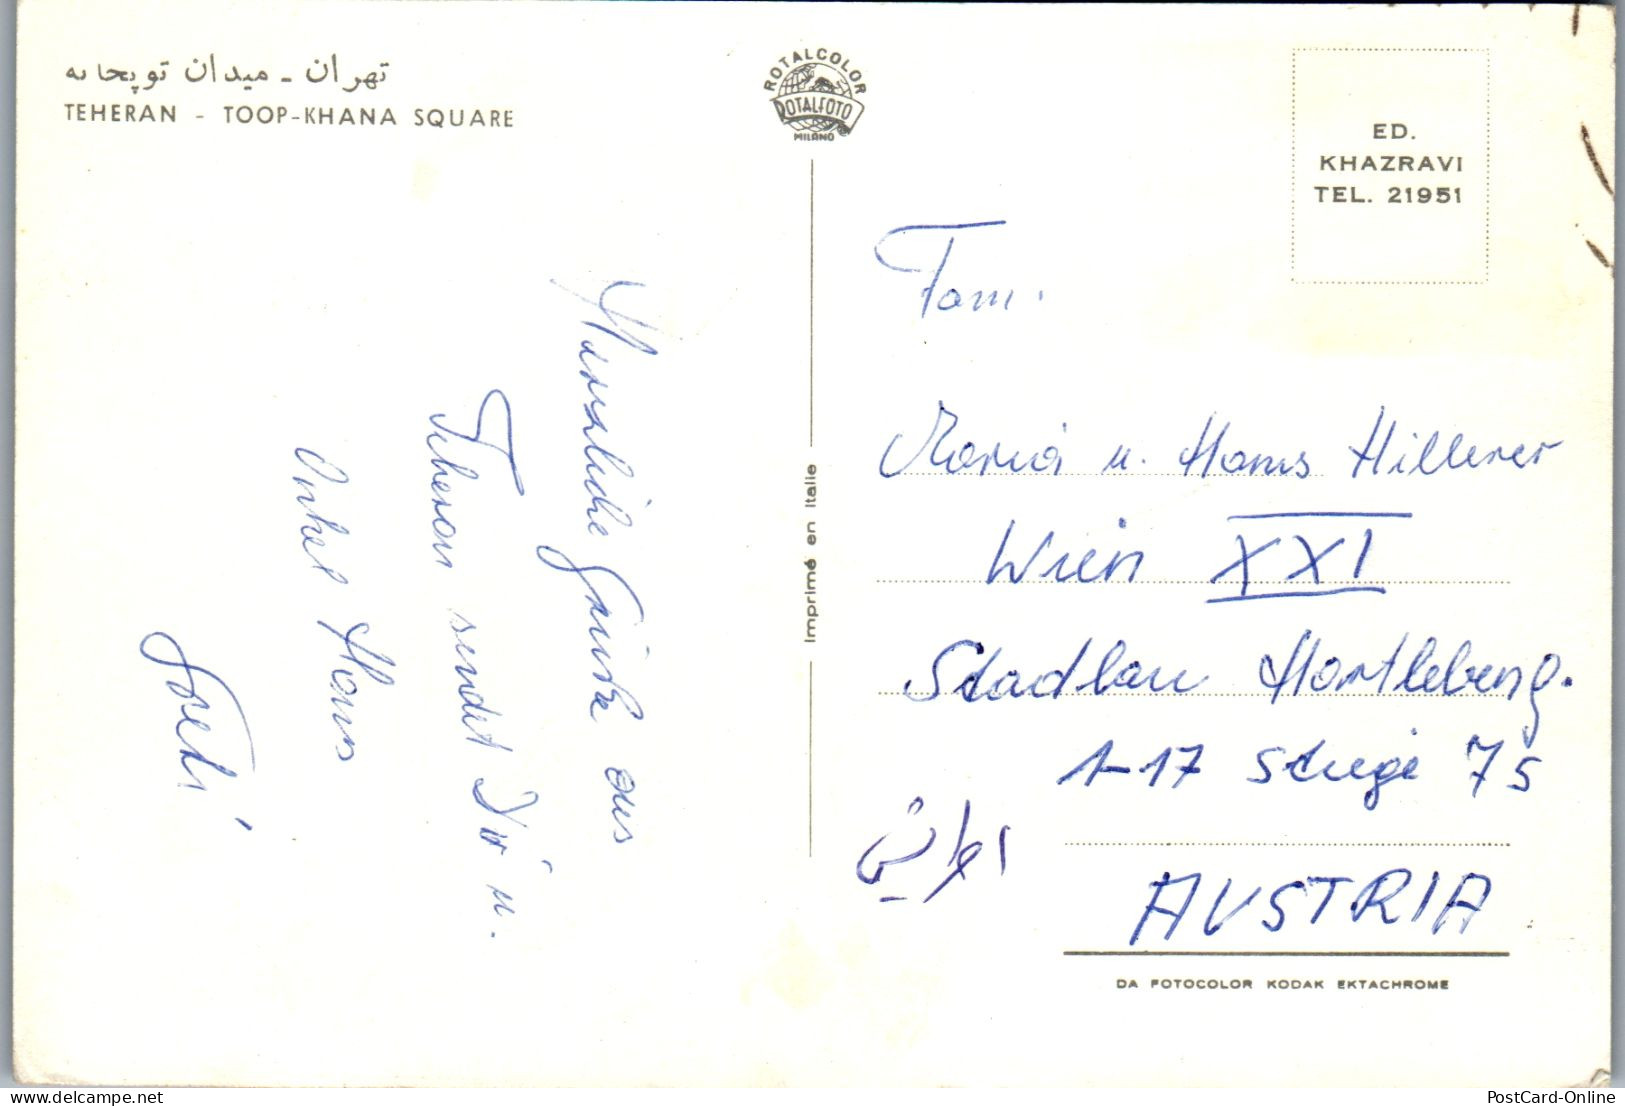 تهران - میدان توپخانه
TEHERAN - TOOP-KHANA SQUARE
ROTALCOLOR
ROTALFOTO
MILANO
ED.
KHAZRAVI
TEL. 21951
Herzliche Grüße aus
Teheran sendet Dir u.
Onkel Hans
Imprimé en Italie
Fam.
Maria u. Hans Hillerer
Wien XXI
Stadlau Hartlebeng.
1-17 Stiege 75
AUSTRIA
DA FOTOCOLOR KODAK EKTACHROME
PostCard-Online